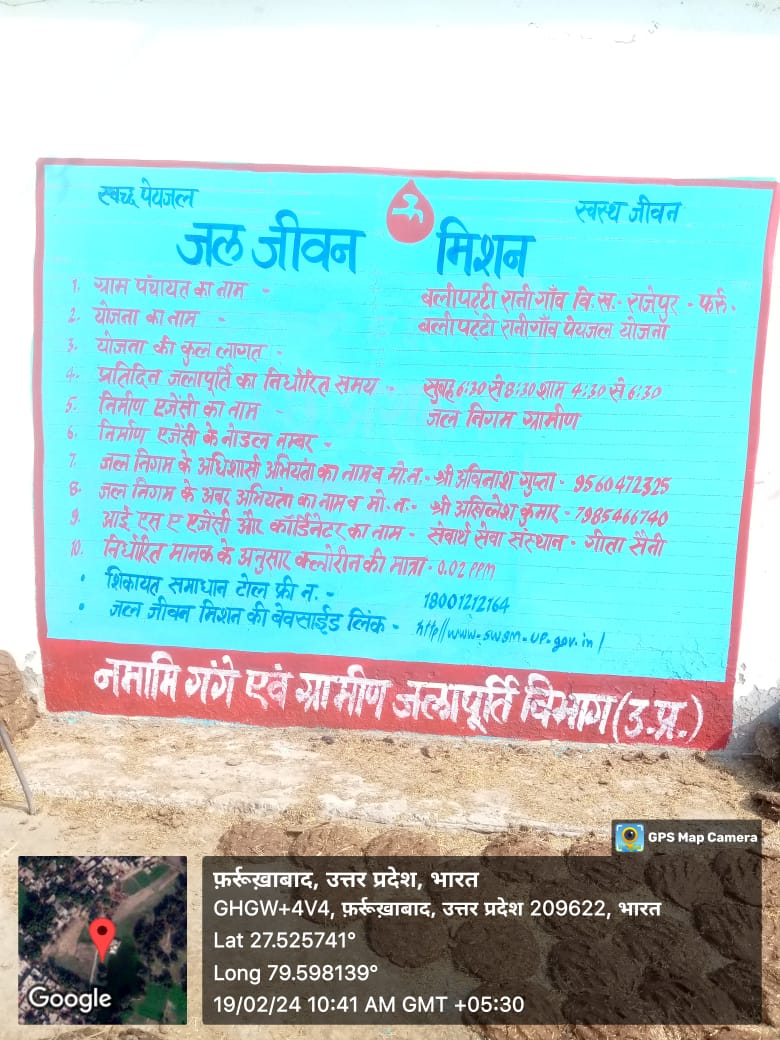 स्वच्छ पेयजल
स्वस्थ जीवन
जल जीवन मिशन
1. ग्राम पंचायत का नाम - बलीपट्टी रानीगाँव वि.ख.- राजेपुर - फर्रु.
2. योजना का नाम - बलीपट्टी रानीगाँव पेयजल योजना
3. योजना की कुल लागत -
4. प्रतिदिन जलापूर्ति का निर्धारित समय - सुबह 6:30 से 8:30 शाम 4:30 से 6:30
5. निर्माण एजेंसी का नाम - जल निगम ग्रामीण
6. निर्माण एजेंसी के नोडल नम्बर -
7. जल निगम के अधिशासी अभियंता का नाम व मो.न.- श्री अविनाश गुप्ता - 9560472325
8. जल निगम के अवर अभियंता का नाम व मो.न.- श्री अखिलेश कुमार - 7985466740
9. आई एस ए एजेंसी और कॉर्डिनेटर का नाम - सेवार्थ सेवा संस्थान - गीता सैनी
10. निर्धारित मानक के अनुसार क्लोरीन की मात्रा - 0.02 PPM
• शिकायत समाधान टोल फ्री न. - 18001212164
• जल जीवन मिशन की बेवसाईड लिंक - http//www-swsm-up-gov.in/
नमामि गंगे एवं ग्रामीण जलापूर्ति विभाग (उ.प्र.)
GPS Map Camera
फ़र्रूख़ाबाद, उत्तर प्रदेश, भारत
GHGW+4V4, फ़र्रूख़ाबाद, उत्तर प्रदेश 209622, भारत
Lat 27.525741°
Long 79.598139°
19/02/24 10:41 AM GMT +05:30
Google